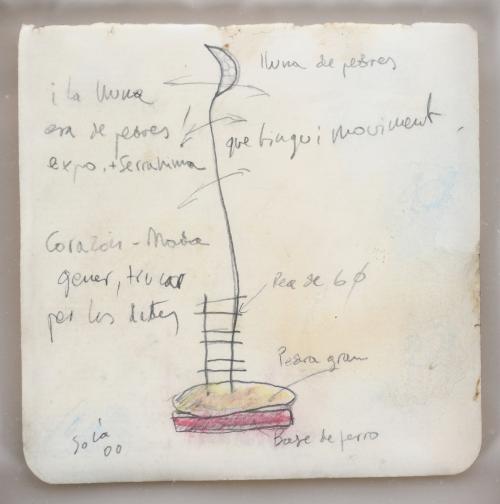 lluna de pedres
i la lluna
era de pedres!
expo. + Serrahima
que tingui moviment
Corazón - Maria
gener, trucar
per les dates
Rea de 6 Ø
Pedra gran
Base de ferro
Solà
00